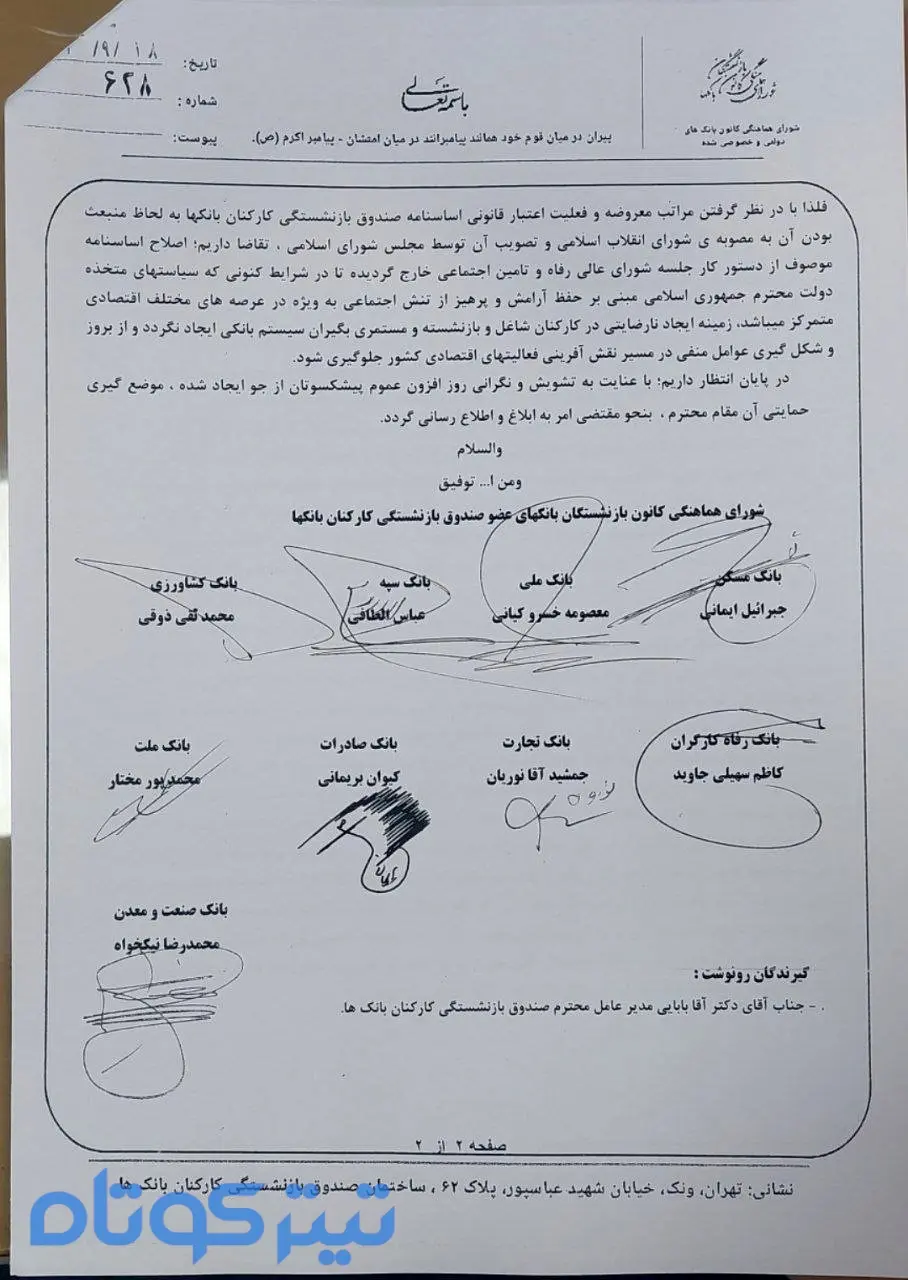 باسمه تعالی
پیران در میان قوم خود همانند پیامبرانند در میان امتشان - پیامبر اکرم (ص).
شورای هماهنگی کانون بانک های
دولتی و خصوصی شده
تاریخ: ۹/۱۸/
شماره: ۶۲۸
پیوست:
فلذا با در نظر گرفتن مراتب معروضه و فعلیت اعتبار قانونی اساسنامه صندوق بازنشستگی کارکنان بانکها به لحاظ منبعث
بودن آن به مصوبه ی شورای انقلاب اسلامی و تصویب آن توسط مجلس شورای اسلامی ، تقاضا داریم؛ اصلاح اساسنامه
موصوف از دستور کار جلسه شورای عالی رفاه و تامین اجتماعی خارج گردیده تا در شرایط کنونی که سیاستهای متخذه
دولت محترم جمهوری اسلامی مبنی بر حفظ آرامش و پرهیز از تنش اجتماعی به ویژه در عرصه های مختلف اقتصادی
متمرکز میباشد، زمینه ایجاد نارضایتی در کارکنان شاغل و بازنشسته و مستمری بگیران سیستم بانکی ایجاد نگردد و از بروز
و شکل گیری عوامل منفی در مسیر نقش آفرینی فعالیتهای اقتصادی کشور جلوگیری شود.
در پایان انتظار داریم؛ با عنایت به تشویش و نگرانی روز افزون عموم پیشکسوتان از جو ایجاد شده ، موضع گیری
حمایتی آن مقام محترم ، بنحو مقتضی امر به ابلاغ و اطلاع رسانی گردد.
والسلام
ومن ا... توفیق
شورای هماهنگی کانون بازنشستگان بانکهای عضو صندوق بازنشستگی کارکنان بانکها
بانک مسکن بانک ملی بانک سپه بانک کشاورزی
جبرائیل ایمانی معصومه خسرو کیانی عباس الطافی محمد تقی ذوقی
بانک رفاه کارگران بانک تجارت بانک صادرات بانک ملت
کاظم سهیلی جاوید جمشید آقا نوریان کیوان بریمانی محمدپور مختار
بانک صنعت و معدن
محمدرضا نیکخواه
گیرندگان رونوشت :
. - جناب آقای دکتر آقا بابایی مدیر عامل محترم صندوق بازنشستگی کارکنان بانک ها.
صفحه ۲ از ۲
نشانی: تهران، ونک، خیابان شهید عباسپور، پلاک ۶۲ ، ساختمان صندوق بازنشستگی کارکنان بانک ها
تیترکوتاه